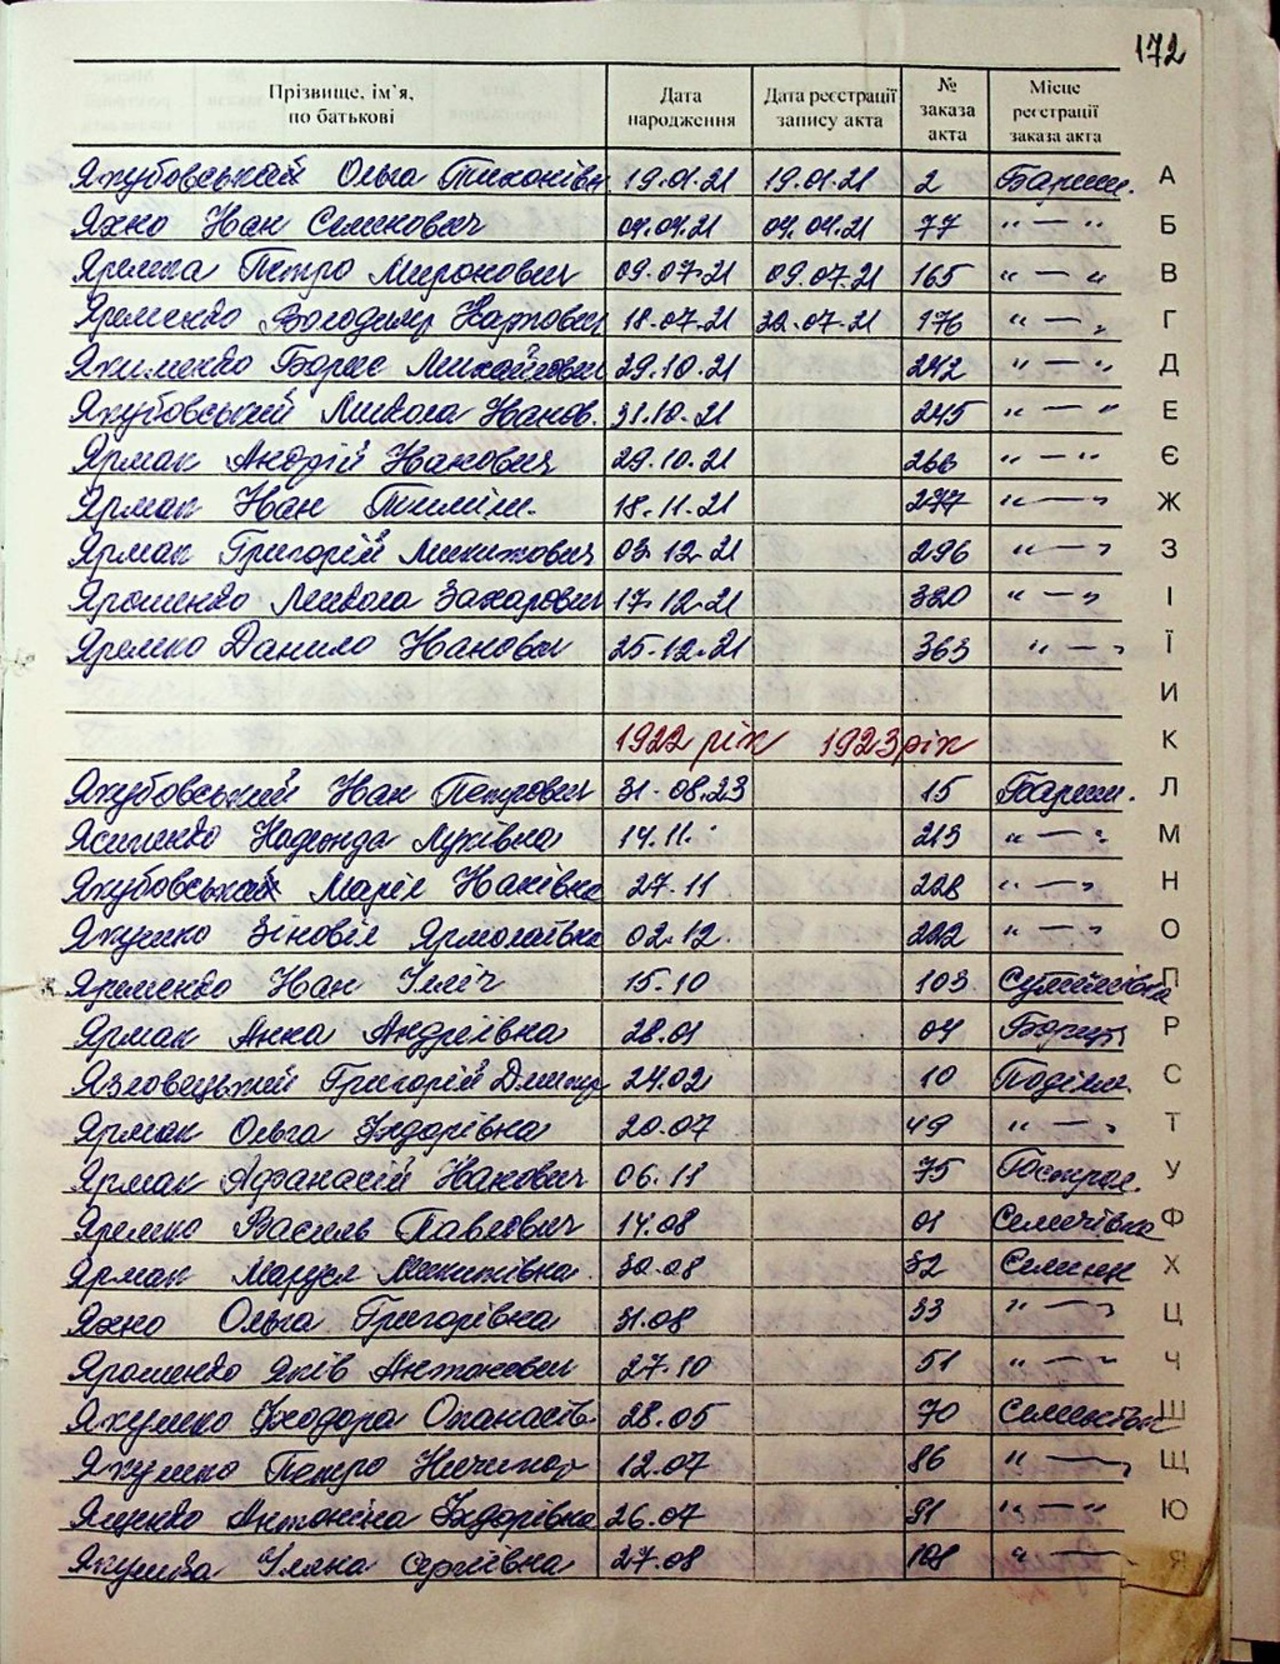 172
Прізвище, ім'я, по батькові Дата народження Дата реєстрації запису акта № заказа акта Місце реєстрації заказа акта
Якубовський Ольга Тихонівн 19.01.21 19.01.21 2 Бариш. А
Яхно Іван Семенович 04.04.21 04.04.21 77 " — " Б
Яремка Петро Миронович 09.07.21 09.07.21 165 " — " В
Яременко Володимир Карпович 18.07.21 22.07.21 176 " — " Г
Якименко Борис Михайлович 29.10.21 242 " — " Д
Якубовський Микола Іванов. 31.10.21 245 " — " Е
Ярмак Андрій Іванович 29.10.21 263 " — " Є
Ярмак Іван Тиміш. 18.11.21 277 " — " Ж
Ярмак Григорій Микитович 03.12.21 296 " — " З
Ярошенко Микола Захарович 17.12.21 320 " — " І
Яремко Данило Іванович 25.12.21 363 " — " Ї
И
1922 рік 1923 рік К
Якубовський Іван Петрович 31.08.23 15 Бариш. Л
Ясиненко Надежда Луківна 14.11. " 213 " — " М
Якубовська Марія Іванівна 27.11 228 " — " Н
Якушко Зіновія Ярмолаївна 02.12. 222 " — " О
Яременко Іван Ілліч 15.10 103 П
Ярмак Анна Андріївна 28.01 04 Р
Язловецький Григорій Дмитр 24.02 10 Поділля. С
Ярмак Ольга Федорівна 20.07 49 " — " Т
Ярмак Афанасій Іванович 06.11 75 Гострол. У
Яремко Василь Павлович 14.08 01 Селичівка Ф
Ярмак Маруся Микитівна 30.08 32 Селище Х
Яхно Ольга Григорівна 31.08 33 " — " Ц
Ярошенко Яків Антонович 27.10 51 " — " Ч
Якушко Феодора Опанасів. 28.05 70 Семенівка Ш
Якушко Петро Ничипор 12.07 86 " — " Щ
Яценко Антоніна Федорівна 26.07 91 " — " Ю
Якушева Уляна Сергіївна 27.08 108 " — " Я